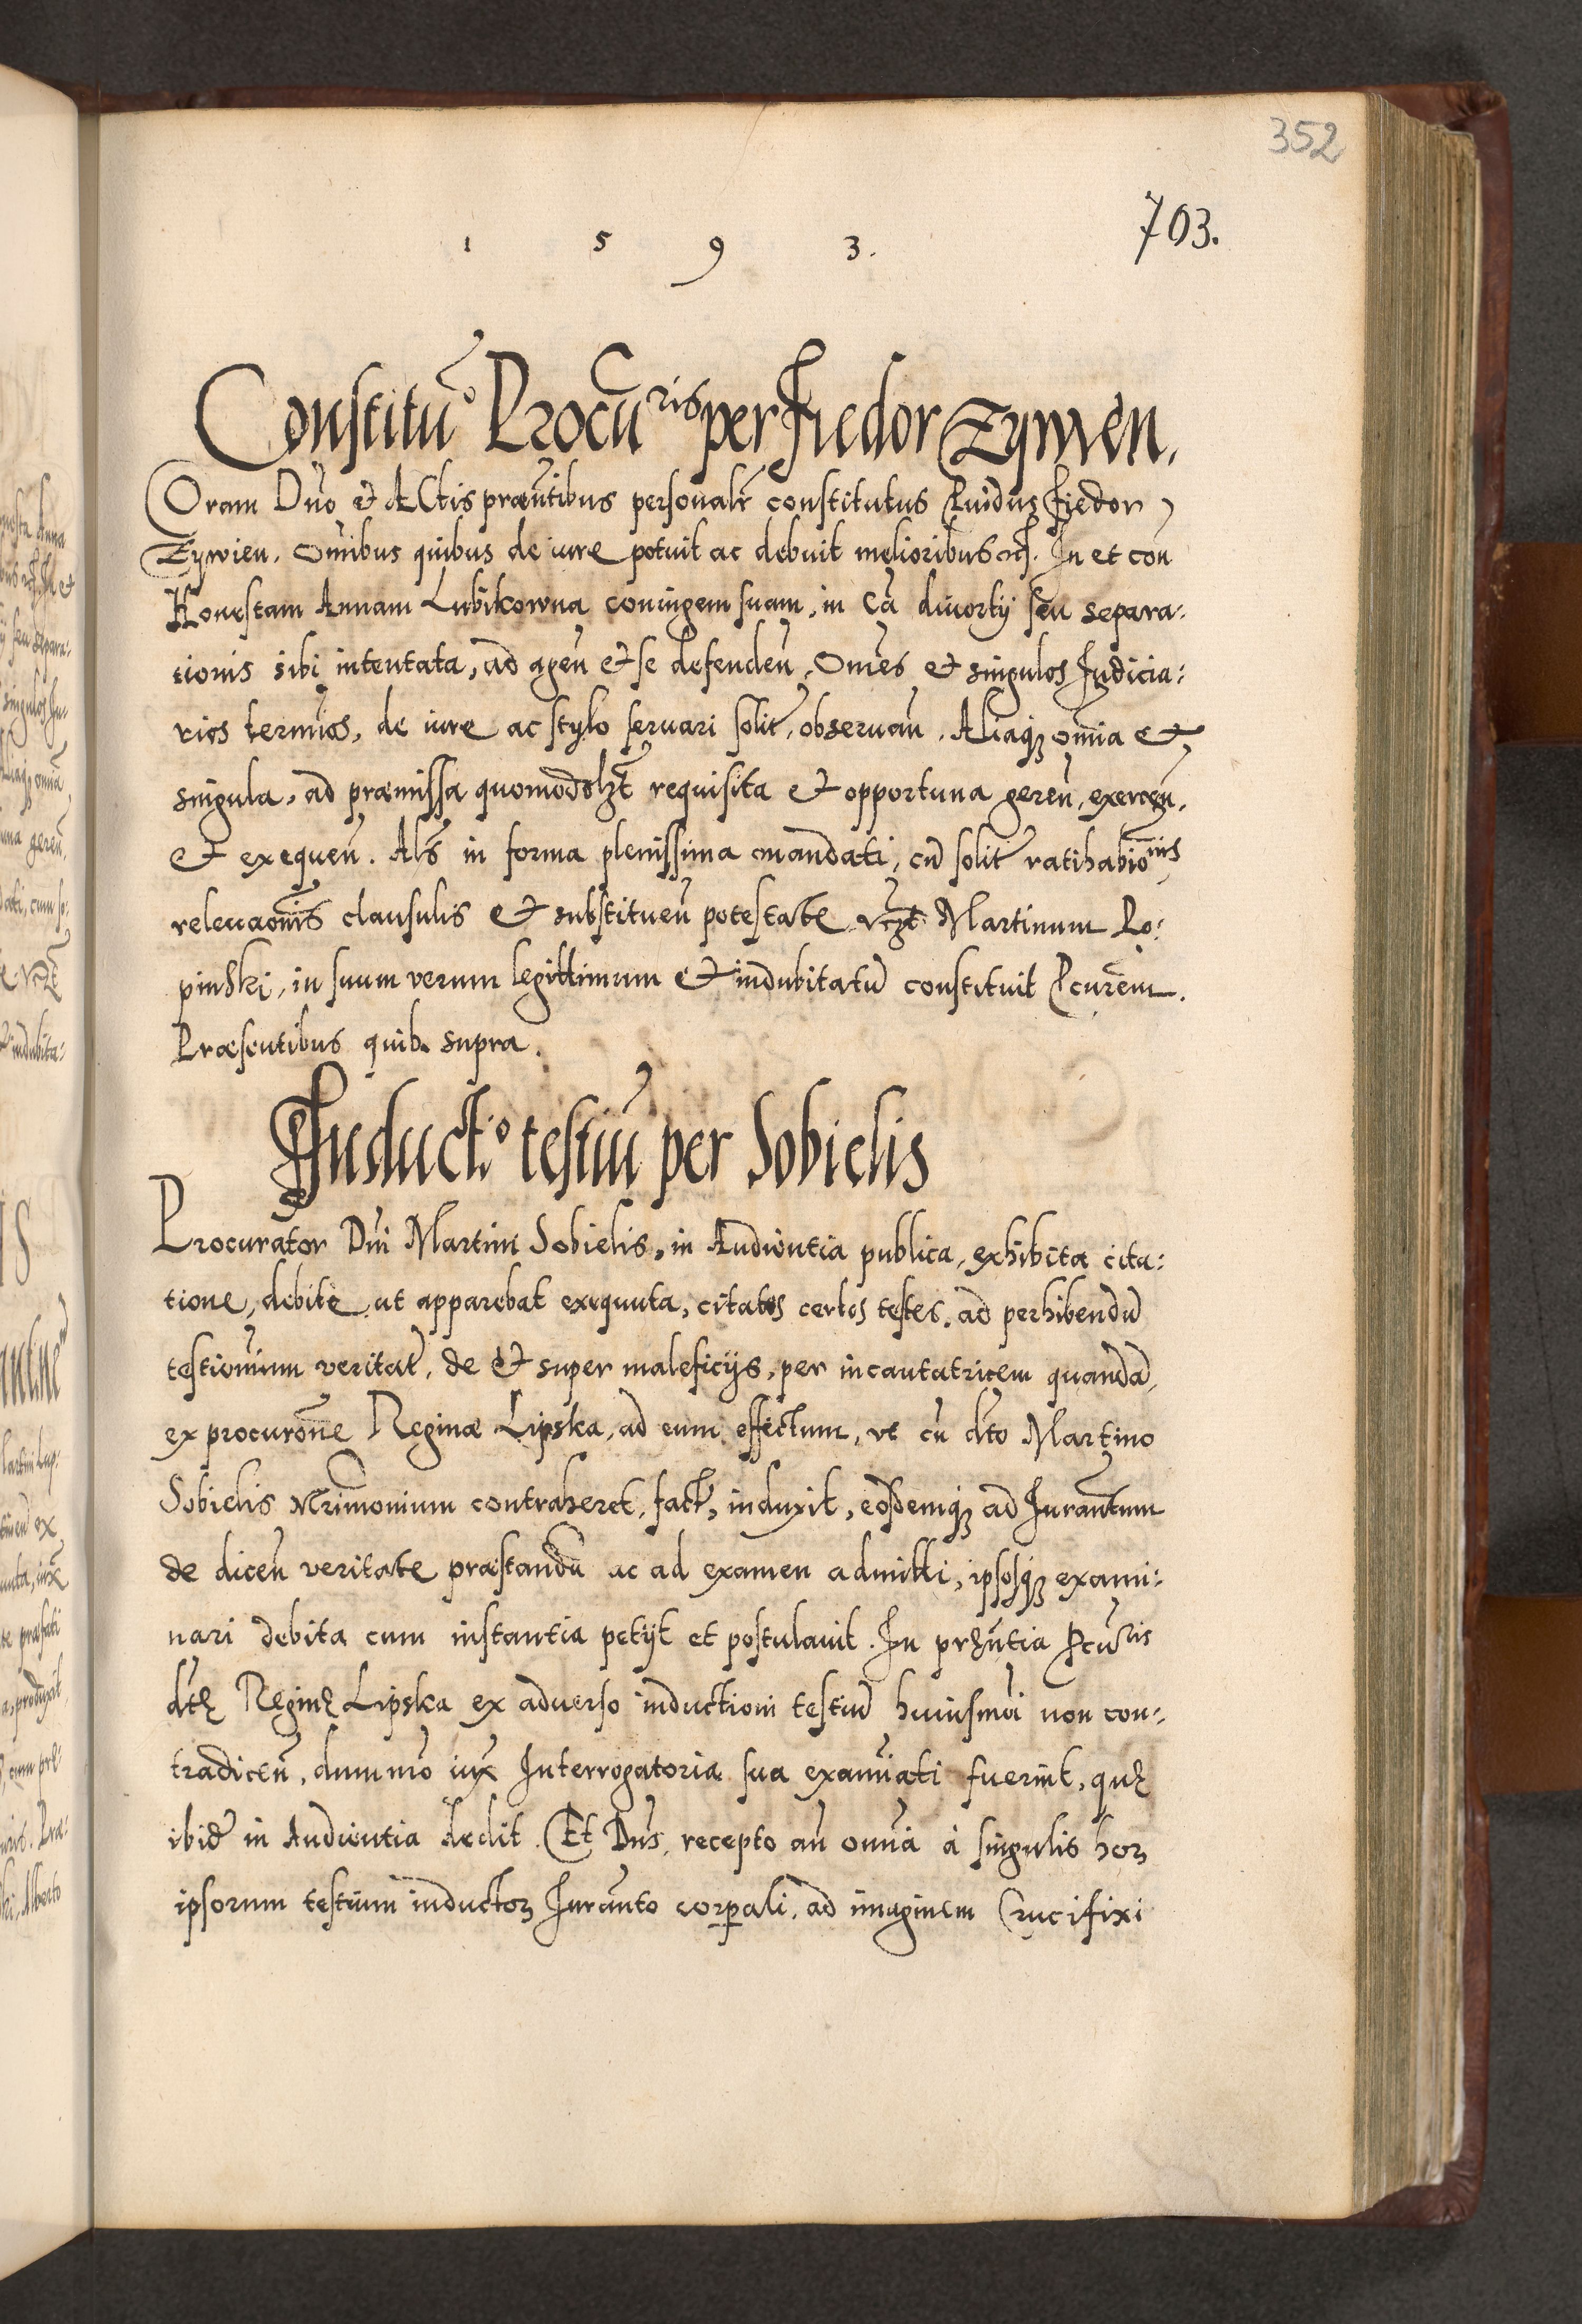 352
703.
1 5 9 3.
Constitu͠o Procu͠ris per Fiedor Zywien.
Coram Dn͠o et ACtis praen͠tibus personalr͠ constitutus Prouidus Fiedor
Zywien. Omibus quibus de iure potuit ac debuit melioribus etc. In et con
Honestam Annam Lubikowna coniugem suam, in Ca͠ diuortij seu separa:
tionis sibi intentata, ad agen͠ et se defenden͠, Om͠es et singulos Judicia:
rios termi͠os, de iure ac stylo seruari solit͠, obseruan͠. Aliaqꝫ om͠ia et
singula, ad praemissa quomodolꝫt͠ requisita et opportuna geren͠, exercen͠,
et exequen͠. Als͠ in forma plenissima mandati, cu͠ solit͠ ratihabio͠nis
releuao͠nis clausulis et substituen͠ potestate vꝫt͠ Martinum Lo:
pinski, in suum verum legittimum et indubitatu͠ constituit Pcure͠m.
Praesentibus quib. supra.
Inductio testiu͠ per Sobielis
Procurator Dn͠i Martini Sobielis, in Audientia publica, exhibita cita:
tione, debite ut apparebat exequuta, citatos certos testes, ad perhibendu͠
testio͠nium veritat͠, de et super maleficijs, per incantatricem quanda͠,
ex procuro͠ne Reginae Lipska, ad eum effectum, vt cu͠ dc͠to Martino
Sobielis Mr͠imonium contraheret, fact͠, induxit, eosdemqꝫ ad Juran͠tum
de dicen͠ veritate praestandu͠ ac ad examen admitti, ipsosqꝫ exami:
nari debita cum instantia petijt et postulauit. In prꝫn͠tia Pcu͠ris
dc͠tę Reginę Lipska ex aduerso inductioni testiu͠ huiusmo͠i non con:
tradicen͠, dummo͠ iux͠ Interrogatoria sua exami͠ati fuerint, quę
ibid͠ in Audientia dedit. Et Dn͠s, recepto an͠ omnia à singulis hoꝝ
ipsorum testium inductoꝝ Juran͠to corporali, ad imaginem Crucifixi